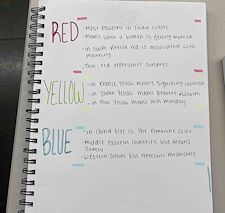 RED
- Most powerful in Indian culture
- Means when a women is getting married
- in south Africa red is associated with
mourning
- Thai: red represents sundays
YELLOW
- in France yellow means significing
- in Japan yellow means bravery wealth
- in Thai yellow means luck monday
BLUE
- in China blue is the feminine color
- middle Eastern countries blue means
safety
- Western culture blue represent melancholy